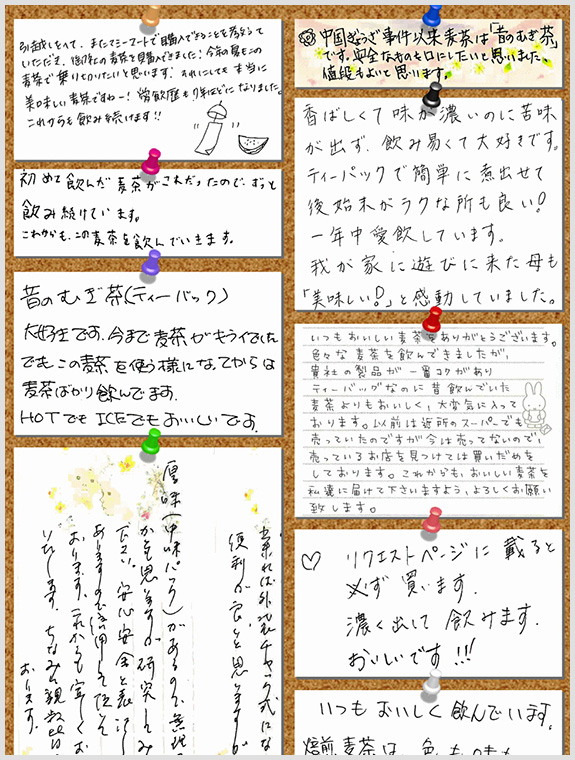 引越しをへて、またマミーマートで購入できることを教えて
いただき、御社の麦茶を購入できました！今年の夏もこの
麦茶で乗り切りたいと思います！それにしても本当に
美味しい麦茶ですねー！愛飲歴も7年ほどになりました。
これからも飲み続けます!!
初めて飲んだ麦茶がこれだったので、ずっと
飲み続けています。
これからも、この麦茶を飲んでいきます。
昔のむぎ茶(ティーバック)
大好きです。今まで麦茶がキライでした
でもこの麦茶を使う様になってからは
麦茶ばかり飲んでます。
HOTでもICEでもおいしいです。
出来れば外袋もチャック式にな
便利が良いと思いますが
厚味(中味パック)があるので無理
かとも思いますが研究してみ
下さい。安心安全と表示し
ありますので信用して使って
おります。これからも宜しくお
いたします。
おります。
中国ぎょうざ事件以来麦茶は「昔のむぎ茶」
です。安全なものを口にしたいと思いました。
値段もよいと思います。
香ばしくて味が濃いのに苦味
が出ず、飲み易くて大好きです。
ティーパックで簡単に煮出せて
後始末がラクな所も良い！
一年中愛飲しています。
我が家に遊びに来た母も
「美味しい！」と感動していました。
いつもおいしい麦茶をありがとうございます。
色々な麦茶を飲んできましたが、
貴社の製品が一番コクがあり
ティーバッグなのに昔飲んでいた
麦茶よりもおいしく、大変気に入って
おります。以前は近所のスーパーでも
売っていたのですが今は売ってないので、
売っているお店を見つけては買いだめを
しております。これからも、おいしい麦茶を
私達に届けて下さいますよう、よろしくお願い
致します。
♡ リクエストページに載ると
必ず買います。
濃く出して飲みます。
おいしいです!!!
いつもおいしく飲んでいます。
焙煎麦茶は、色も味も